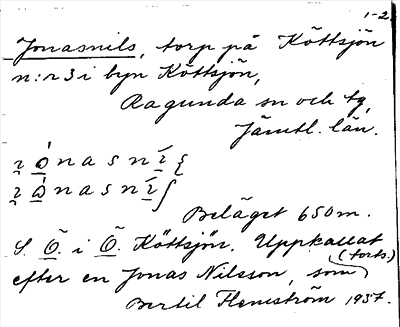 1-2.
Jonasnils, torp på Köttsjön
n:r 3 i byn Köttsjön,
Ragunda sn och tg,
Jämtl. län.
Beläget 650 m.
S. Ö. i Ö. Köttsjön. Uppkallat
(forts.)
efter en Jonas Nilsson, som
Bertil Flemström 1937.